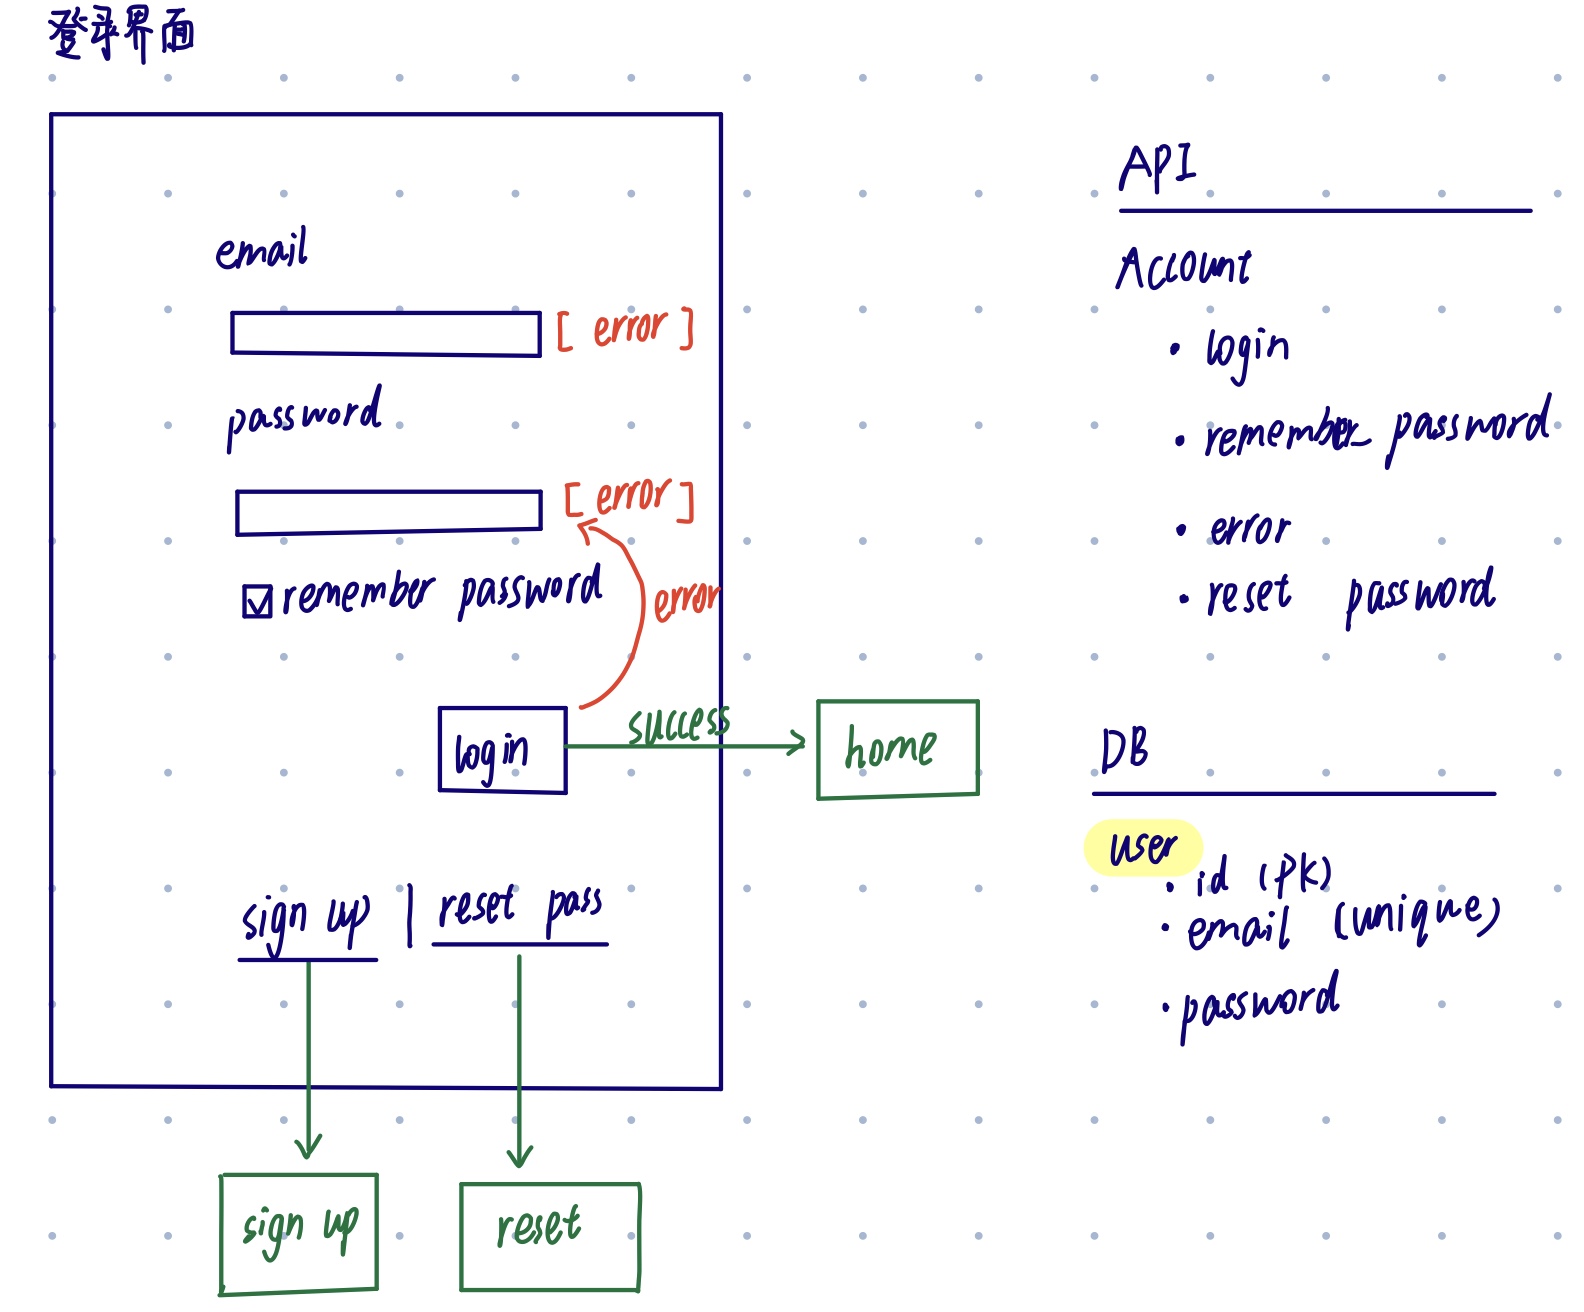 登录界面
email
[ error ]
password
[ error ]
remember password
error
login
success
home
sign up | reset pass
sign up
reset
API
Account
• login
• remember_ password
• error
• reset password
DB
user
• id (PK)
• email (unique)
• password